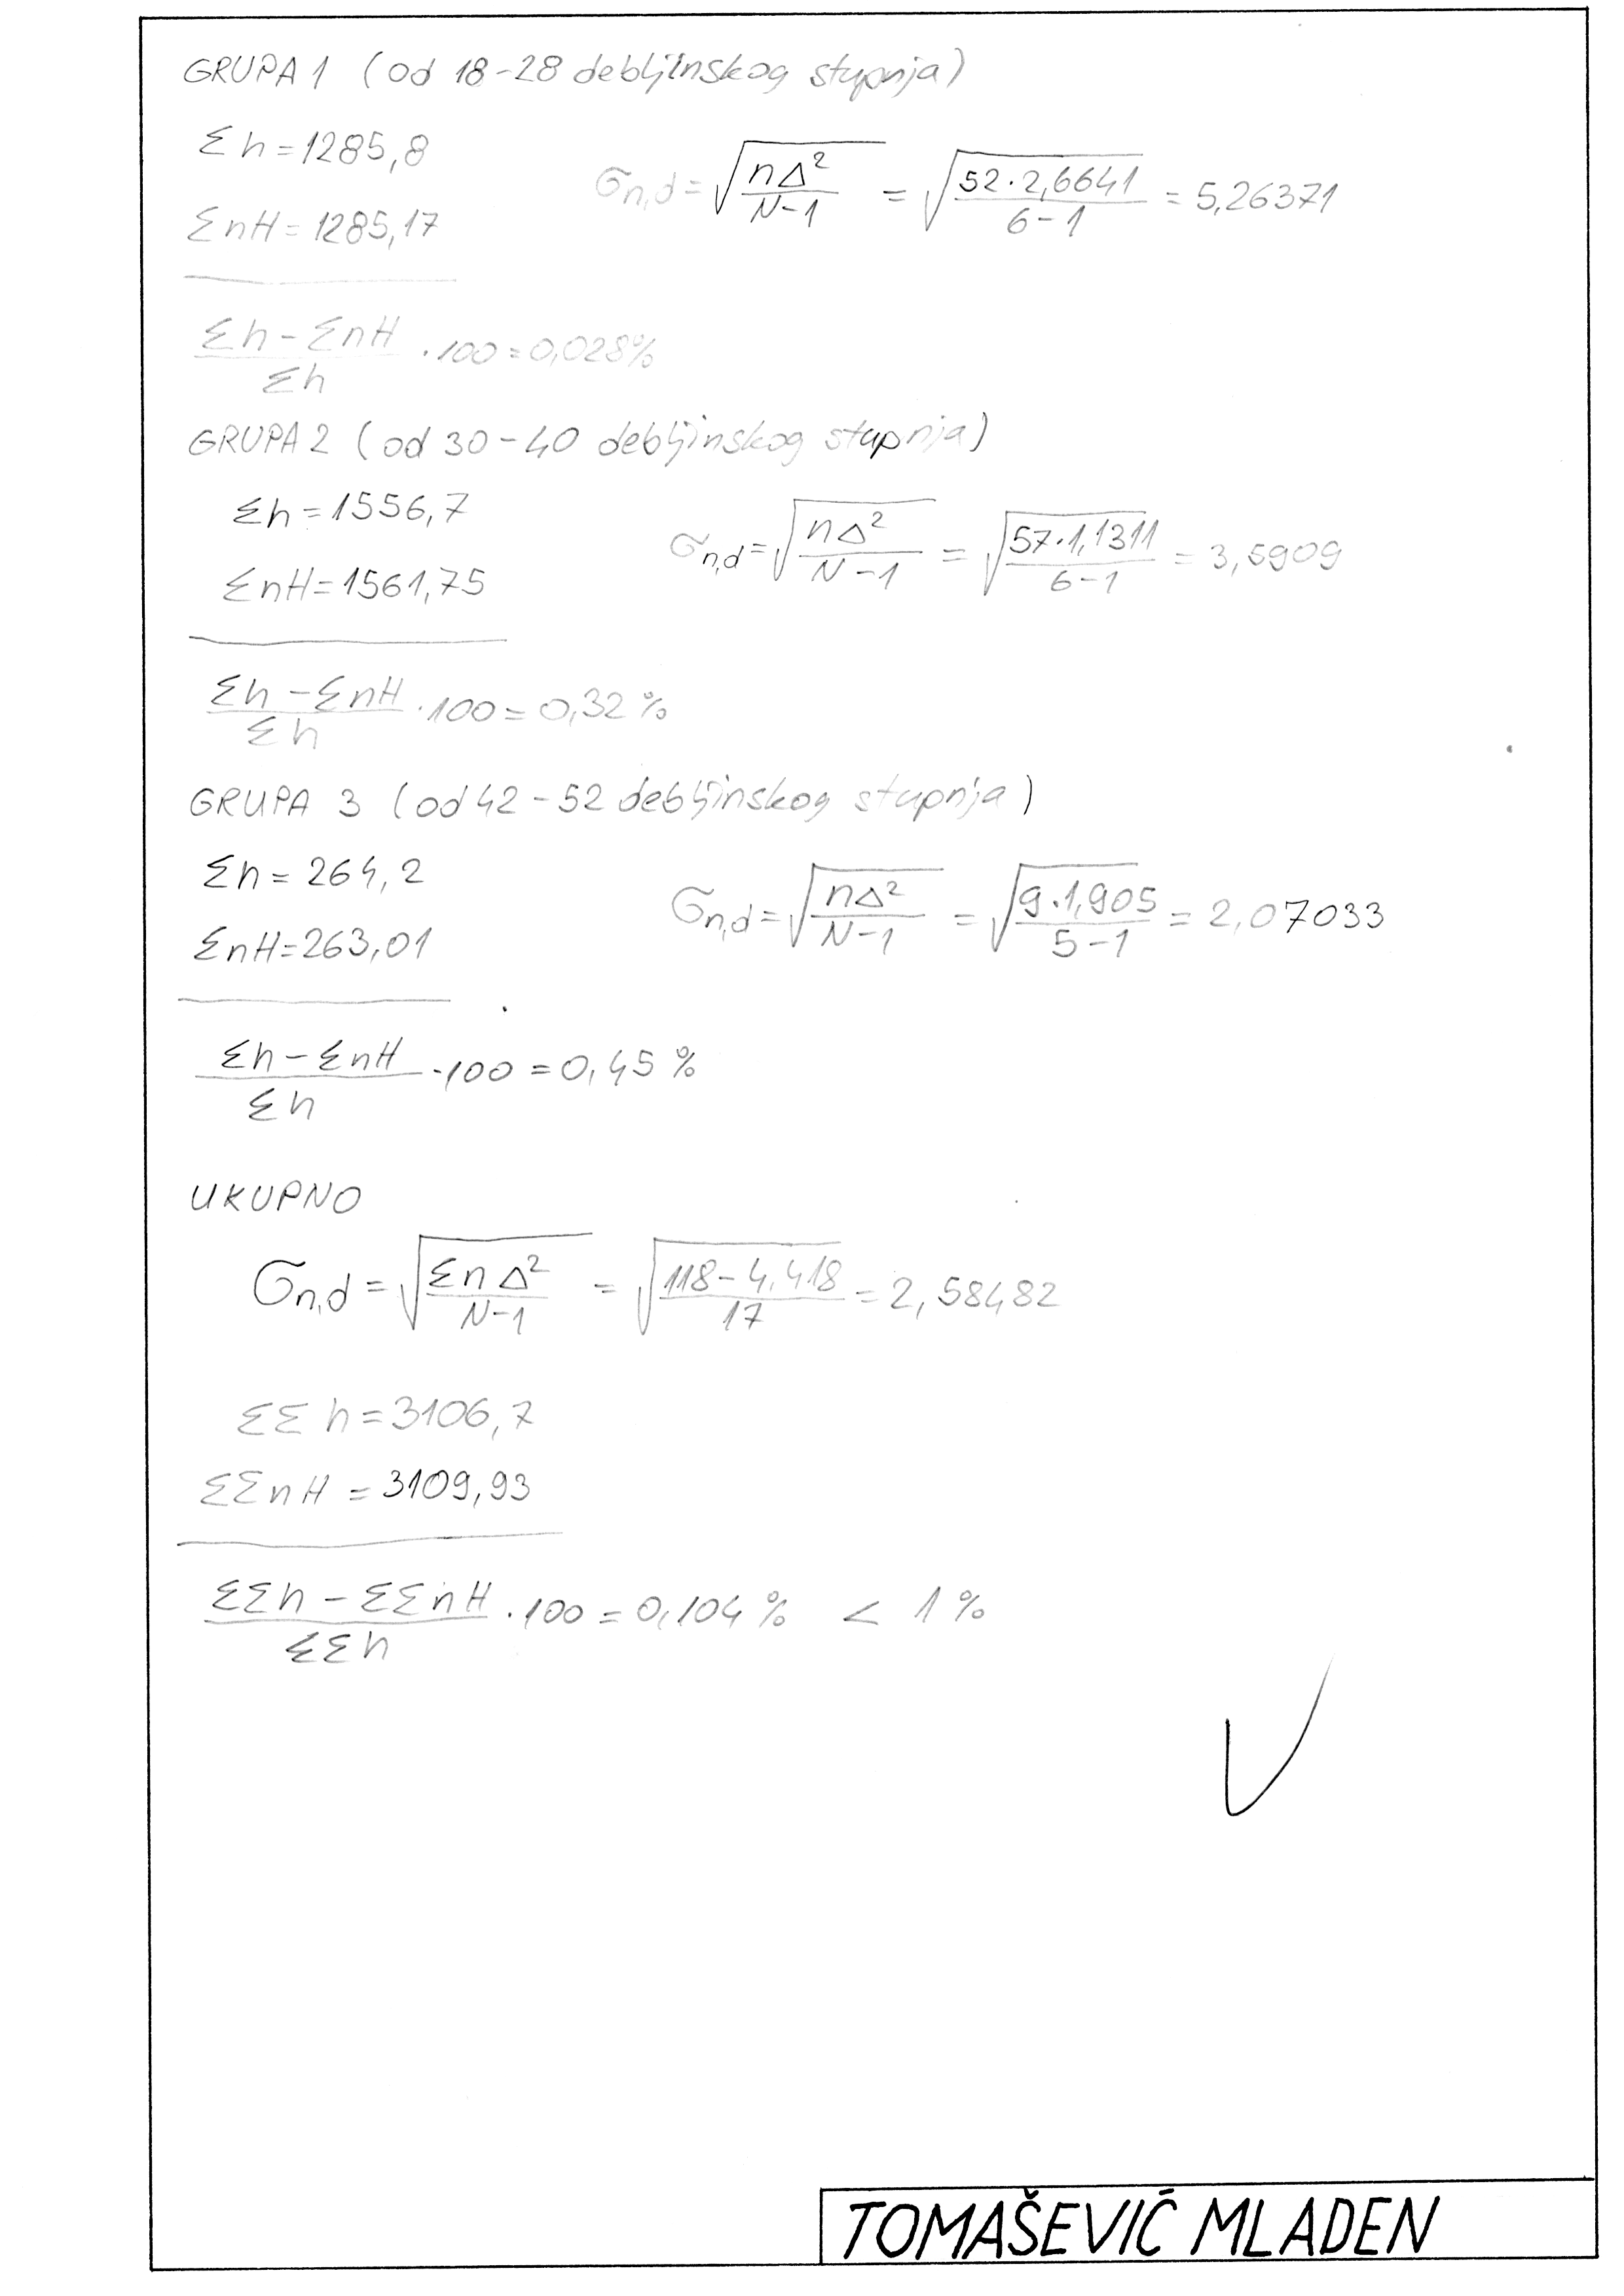 GRUPA 1 (od 18-28 debljinskog stupnja)
Σh = 1285,8
σn,d = √(nΔ²/N-1) = √(52·2,6641/6-1) = 5,26371
ΣnH = 1285,17
Σh - ΣnH/Σh ·100 = 0,028%
GRUPA 2 (od 30-40 debljinskog stupnja)
Σh = 1556,7
σn,d = √(nΔ²/N-1) = √(57·1,1311/6-1) = 3,5909
ΣnH = 1561,75
Σh - ΣnH/Σh ·100 = 0,32%
GRUPA 3 (od 42-52 debljinskog stupnja)
Σh = 264,2
σn,d = √(nΔ²/N-1) = √(9·1,905/5-1) = 2,07033
ΣnH = 263,01
Σh - ΣnH/Σh ·100 = 0,45%
UKUPNO
σn,d = √(ΣnΔ²/N-1) = √(118-4,418/17) = 2,58482
ΣΣh = 3106,7
ΣΣnH = 3109,93
ΣΣh - ΣΣnH/ΣΣh ·100 = 0,104% < 1%
TOMAŠEVIĆ MLADEN